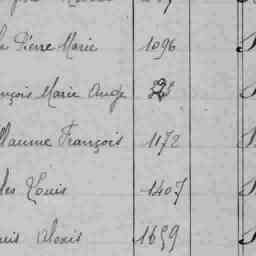 Pierre Marie 1096
nçois Marie Ange
llaume François 1172
les Louis 1407
uis Alexis 1659